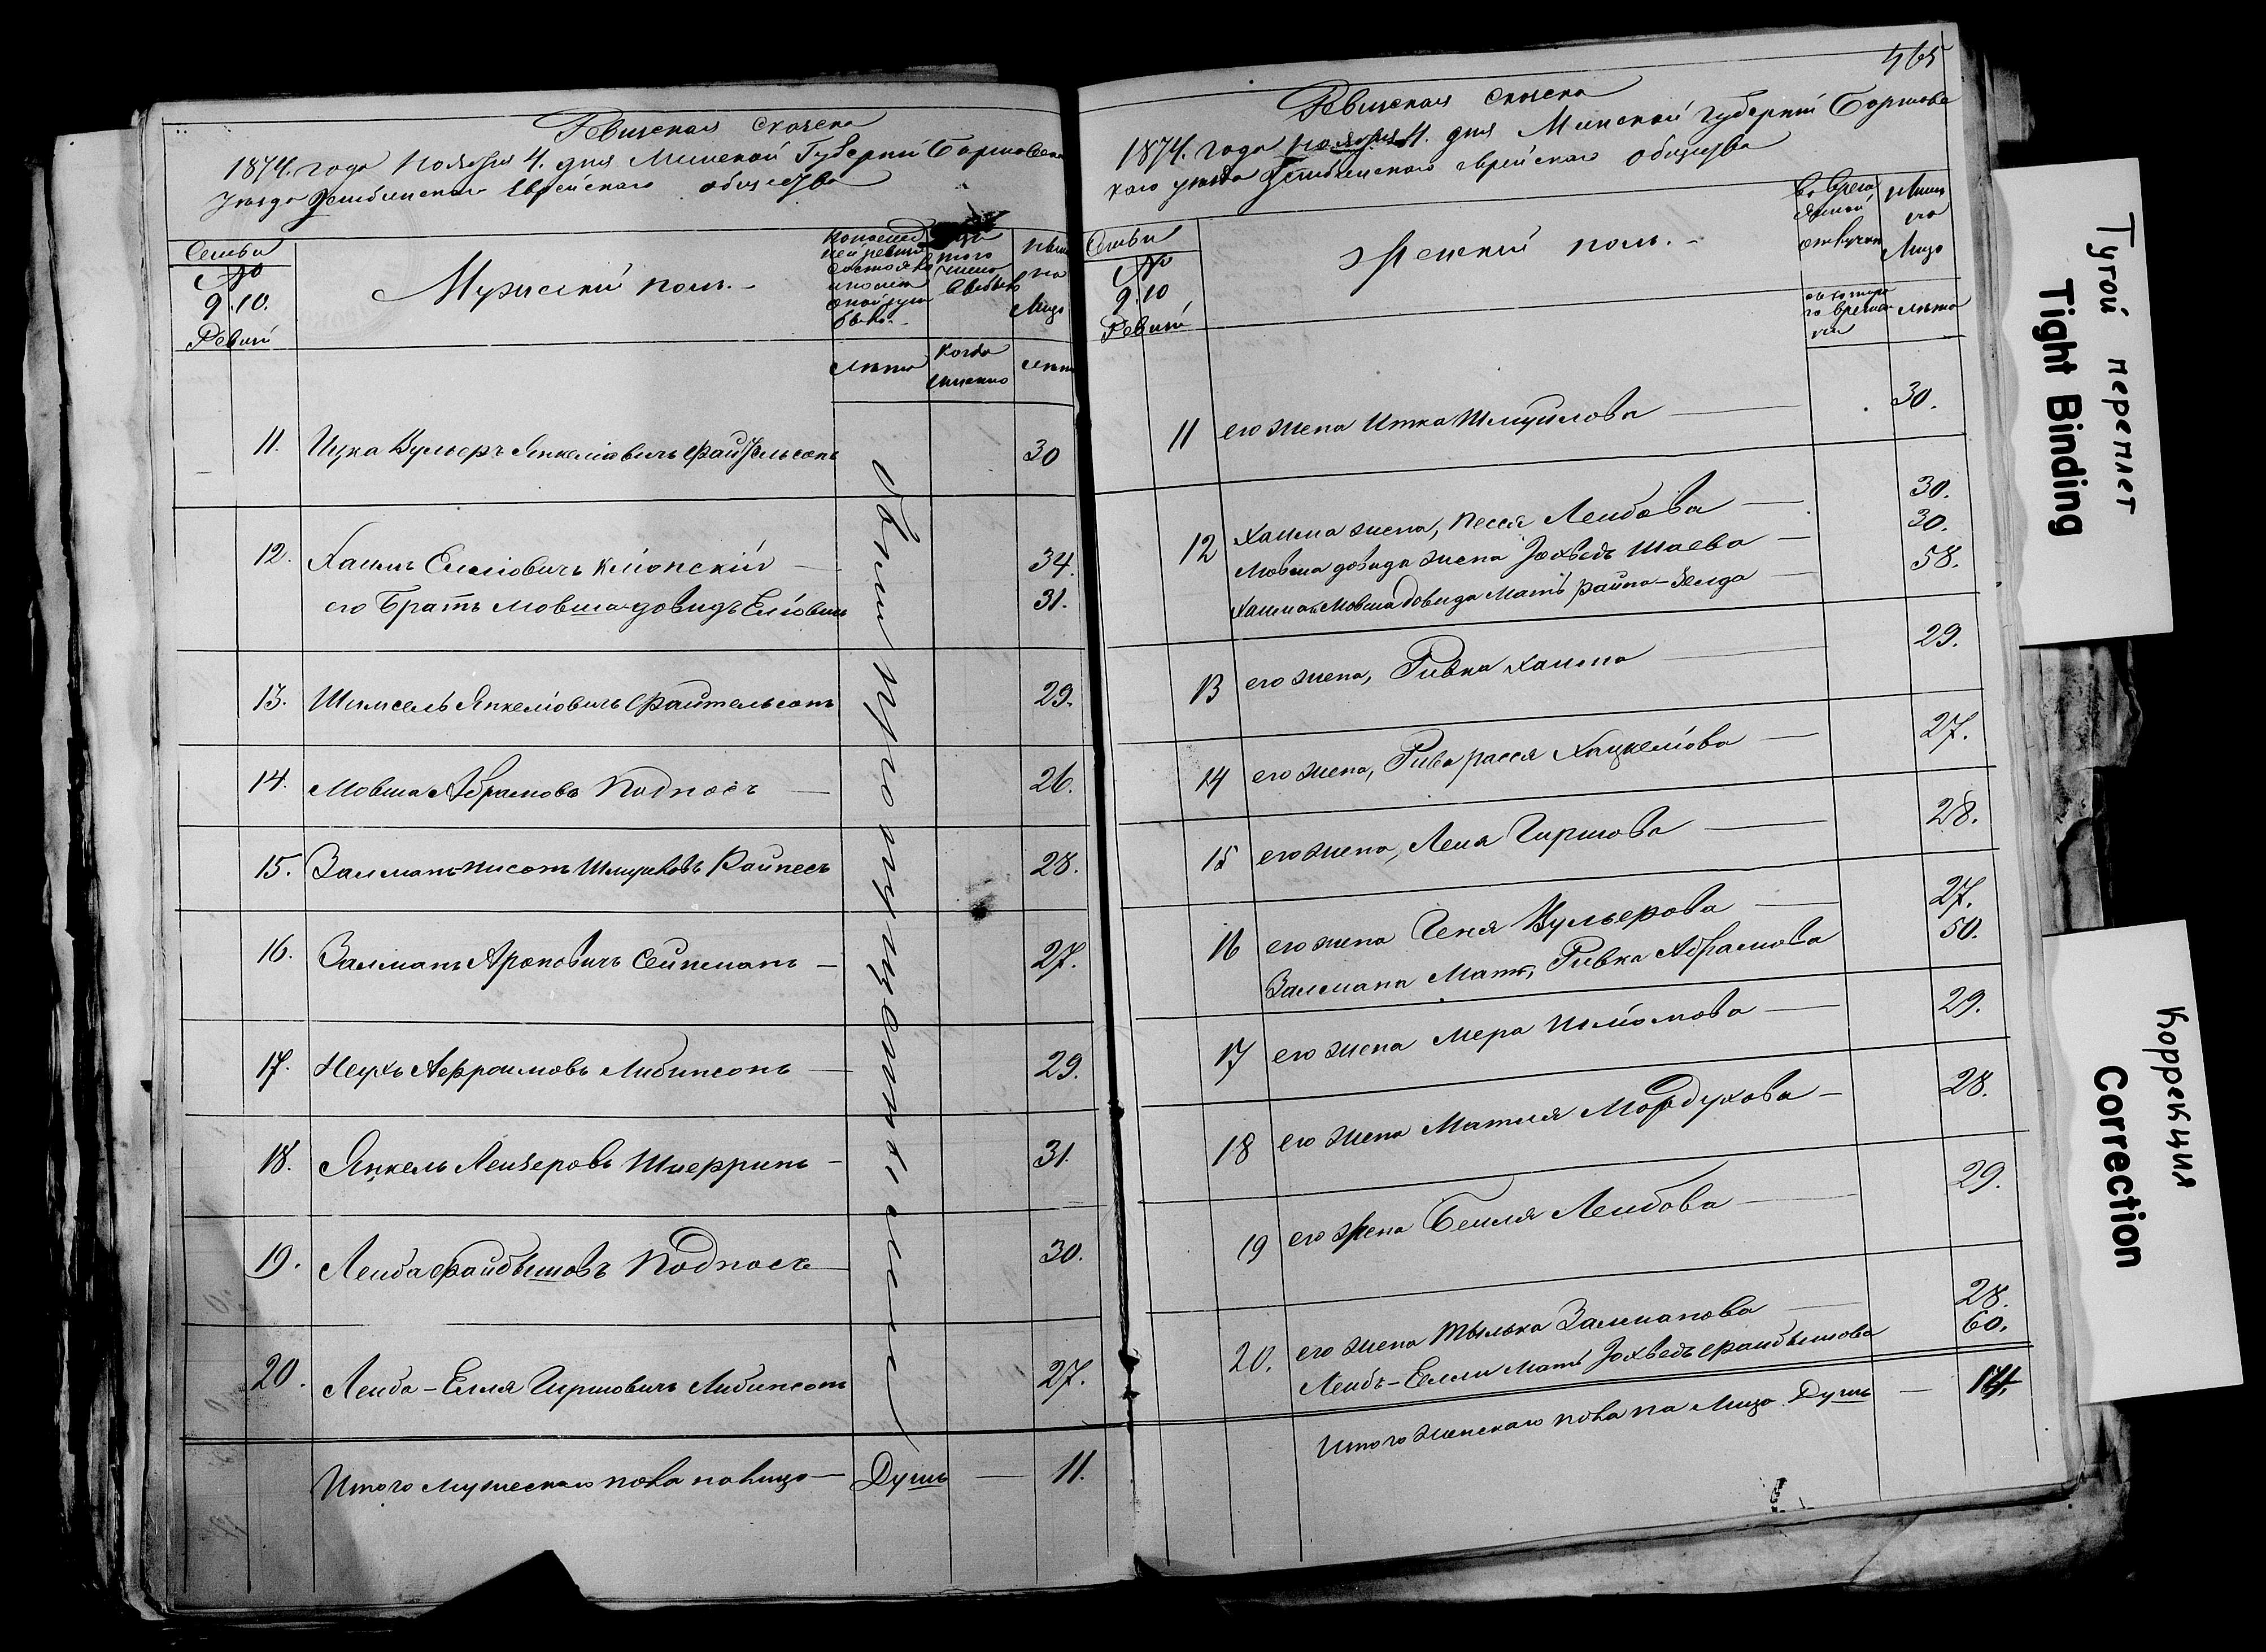 Ревизская сказка
1874. года Ноября 4. дня Минской Губернии Борисовска
уезда Зембинскаго Еврейскаго общества
Семьи
№
9.10.
Ревизи
Мужеский полъ.
По послед
ней ревизии
состояло
было.
выбыло
Ныне
на
Лицо
лета
Когда
именно
лета
11. Ицка Вульфъ Янкелиовичъ Файтельсонъ 30
12. Хаимъ Елиовичъ Клионский 34.
его Братъ Мовша-Довидъ Елиовичъ 31.
13. Шимсель Янкелиовичъ Файтельсонъ 29.
14. Мовша Абрамовъ Подносъ 26.
15. Залманъ-Нисонъ Шмуиловъ Райнесъ 28.
16. Залманъ Ароновичъ 27.
17. Неухъ Аефроимовъ Либинсонъ 29.
18. Янкель Лейзеровъ Шиеринъ 31.
19. Лейба Файбышовъ Подносъ 30.
20. Лейба-Елля Гиршовичъ Либинсонъ 27.
Были пропущенными
Итого мужескаго пола на лицо Душъ 11.
465
Ревизская сказка
1874. года Ноября 4. дня Минской губернии Борисовс
каго уезда Зембинскаго еврейскаго общества
Семьи
№
9.10
Ревизи
Женский полъ.
во врем
енной
отлучке
Ныне
на
Лицо
съ котора
го време
ни
лета
11 его жена Итка Шмуилова 30.
12 Хаима жена, Песся Лейбова 30.
Мовша довида жена Іохведъ Шаева 30.
Хаима и Мовша Довида Мать Райна-Зелда 58.
13 его жена, Ривка Хаимова 29.
14 его жена, Рива расся Хацкелиова 27.
15 его жена, Лея Гиршова 28.
16 его жена Геня Вульферова 27.
Залмана Мать, Ривка Абрамова 50.
17 его жена Мера Шлиомова 29.
18 его жена Матля Мордухова 28.
19 его жена Бейля Лейбова 29.
20. его жена Тылька Залманова 28.
Лейбъ-Елли Мать Іохведъ Файбышова 60.
Итого женскаго пола на Лицо Душъ 14.
Тугой переплет
Tight Binding
Коррекция
Correction